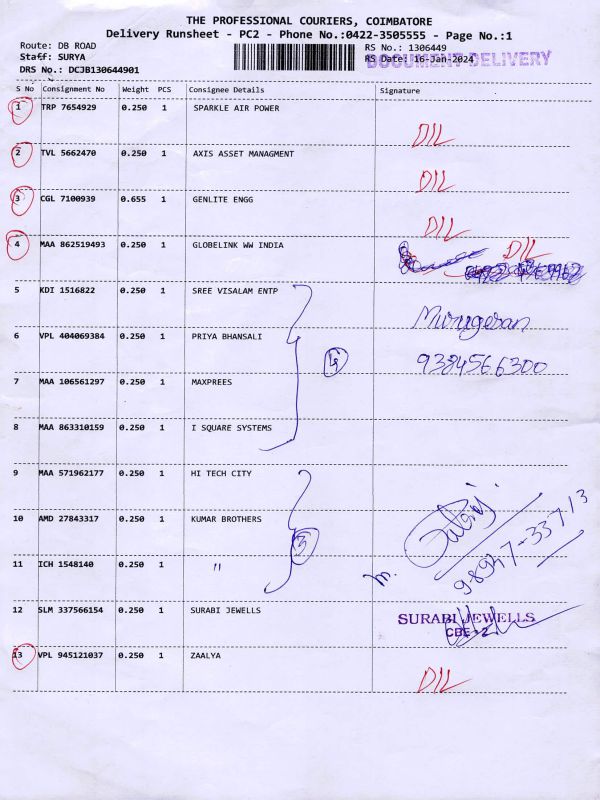 THE PROFESSIONAL COURIERS, COIMBATORE
Delivery Runsheet - PC2 - Phone No.:0422-3505555 - Page No.:1
Route: DB ROAD RS No.: 1306449
Staff: SURYA RS Date: 16-Jan-2024 DOCUMENT DELIVERY
DRS No.: DCJB130644901
S No Consignment No Weight PCS Consignee Details Signature
1 TRP 7654929 0.250 1 SPARKLE AIR POWER
DIL
2 TVL 5662470 0.250 1 AXIS ASSET MANAGMENT
DIL
3 CGL 7100939 0.655 1 GENLITE ENGG
DIL
4 MAA 862519493 0.250 1 GLOBELINK WW INDIA DIL
5 KDI 1516822 0.250 1 SREE VISALAM ENTP
Murugesan
6 VPL 404069384 0.250 1 PRIYA BHANSALI
4 9384566300
7 MAA 106561297 0.250 1 MAXPREES
8 MAA 863310159 0.250 1 I SQUARE SYSTEMS
9 MAA 571962177 0.250 1 HI TECH CITY
10 AMD 27843317 0.250 1 KUMAR BROTHERS
3
11 ICH 1548140 0.250 1 "
m.
98947-33713
12 SLM 337566154 0.250 1 SURABI JEWELLS
SURABI JEWELLS
CBE - 2.
13 VPL 945121037 0.250 1 ZAALYA
DIL